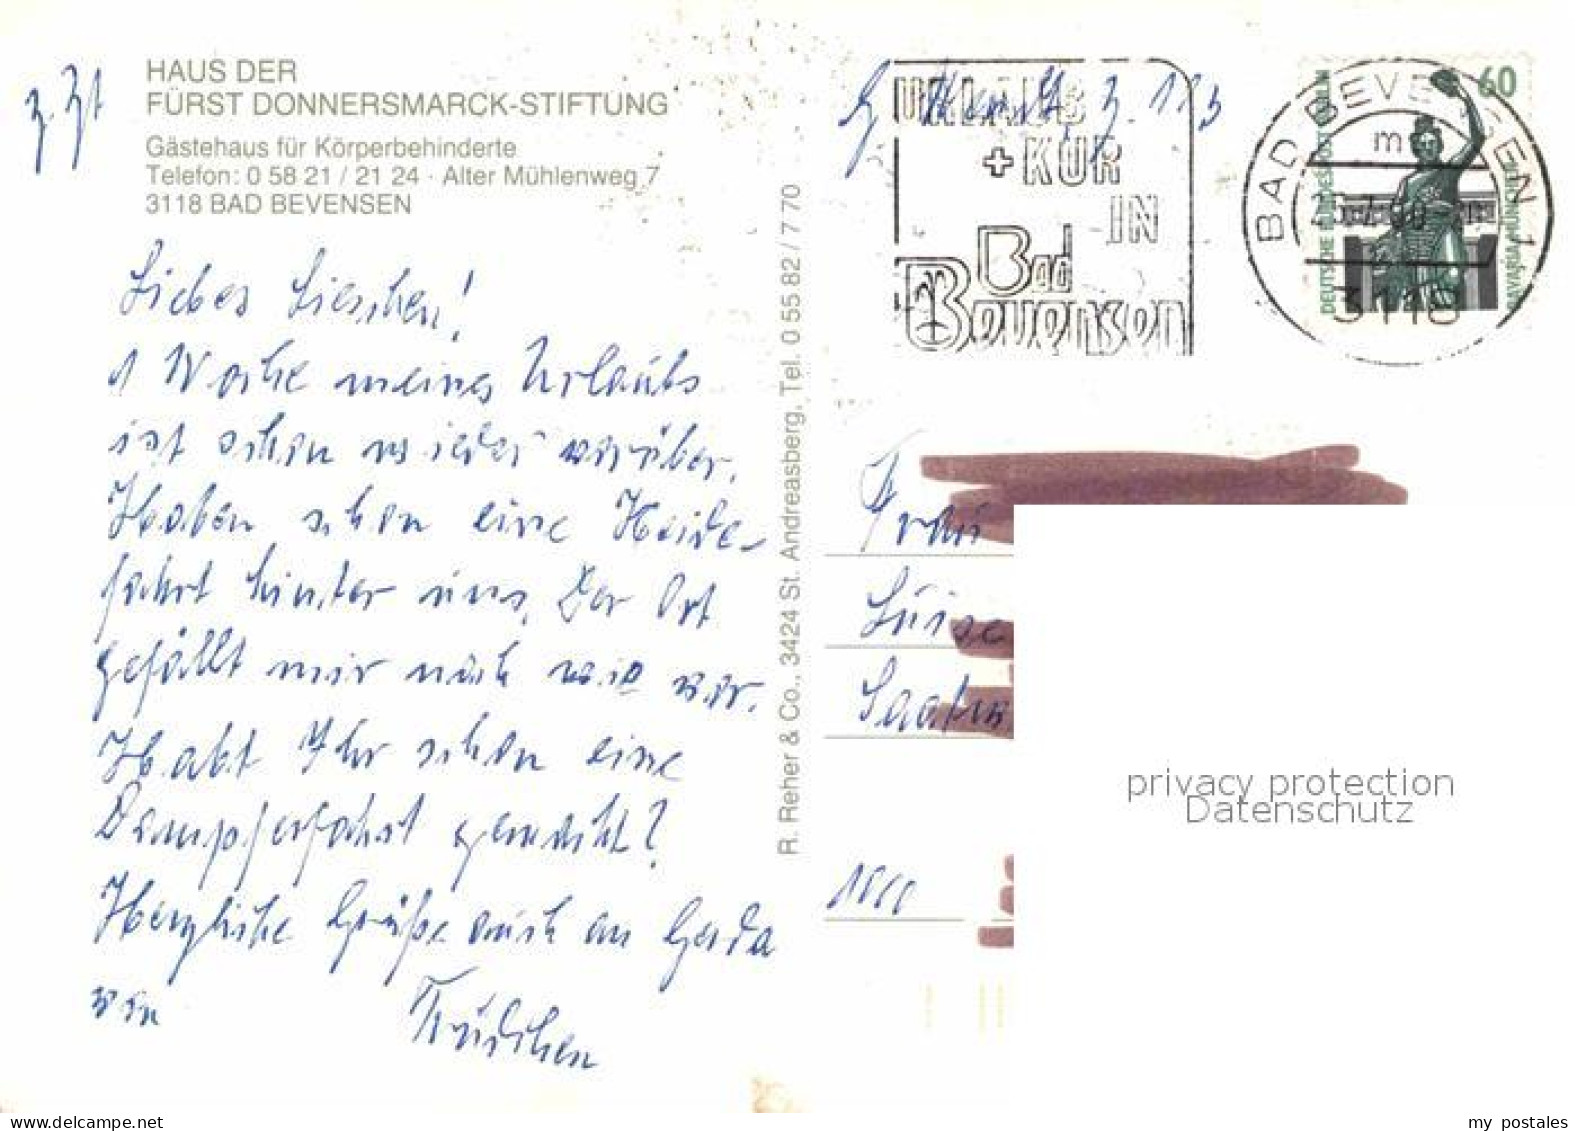 z. Zt
HAUS DER
FÜRST DONNERSMARCK-STIFTUNG
Gästehaus für Körperbehinderte
Telefon: 0 58 21 / 21 24 · Alter Mühlenweg 7
3118 BAD BEVENSEN
Liebes Lieschen!
1 Woche meines Urlaubs
ist schon wieder vorüber.
Haben schon eine Heide-
fahrt hinter uns. Der Ort
gefällt mir nach wie vor.
Habt Ihr schon eine
Dampferfahrt gemacht?
Herzliche Grüße auch an Gerda
von Trudchen
R. Reher & Co., 3424 St. Andreasberg, Tel. 0 55 82 / 7 70
URLAUB
+ KUR
IN
Bad
Bevensen
BAD BEVENSEN 1
m
3118
60
DEUTSCHE BUNDESPOST BERLIN
BAVARIA MÜNCHEN
Frau
Luise
1000
privacy protection
Datenschutz
my postales